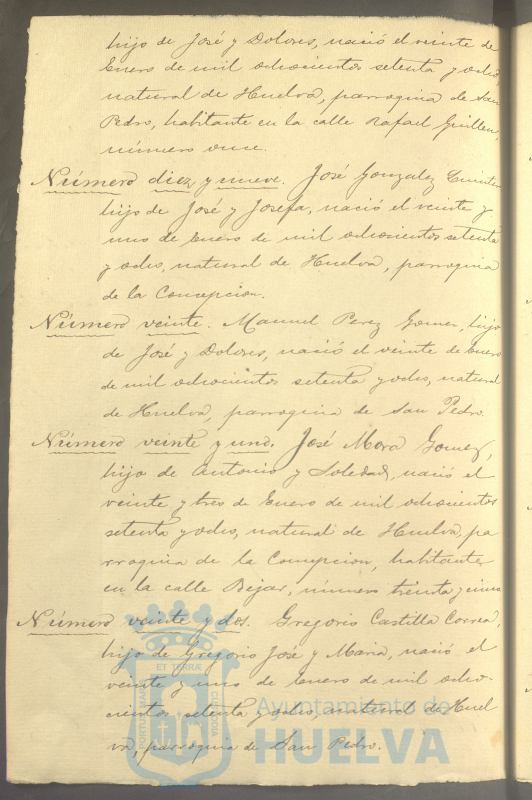 hijo de José y Dolores, nació el veinte de
Enero de mil ochocientos setenta y ocho,
natural de Huelva, parroquia de San
Pedro, habitante en la calle Rafael Guillen,
número once.
Número diez y nueve. José Gonzalez Quintero
hijo de José y Josefa, nació el veinte y
uno de Enero de mil ochocientos setenta
y ocho, natural de Huelva, parroquia
de la Concepcion.
Número veinte. Manuel Perez Gomez, hijo
de José y Dolores, nació el veinte de Enero
de mil ochocientos setenta y ocho, natural
de Huelva, parroquia de San Pedro.
Número veinte y uno. José Mora Gomez,
hijo de Antonio y Soledad, nació el
veinte y tres de Enero de mil ochocientos
setenta y ocho, natural de Huelva, pa
rroquia de la Concepcion, habitante
en la calle Bejar, número treinta y cinco
Número veinte y dos. Gregorio Castilla Correa,
hijo de Gregorio José y Maria, nació el
veinte y uno de Enero de mil ocho-
cientos setenta y ocho, natural de Huel
va, parroquia de San Pedro.
ET TERRÆ
PORTUS MARIS
CUSTODIA
Ayuntamiento de
HUELVA